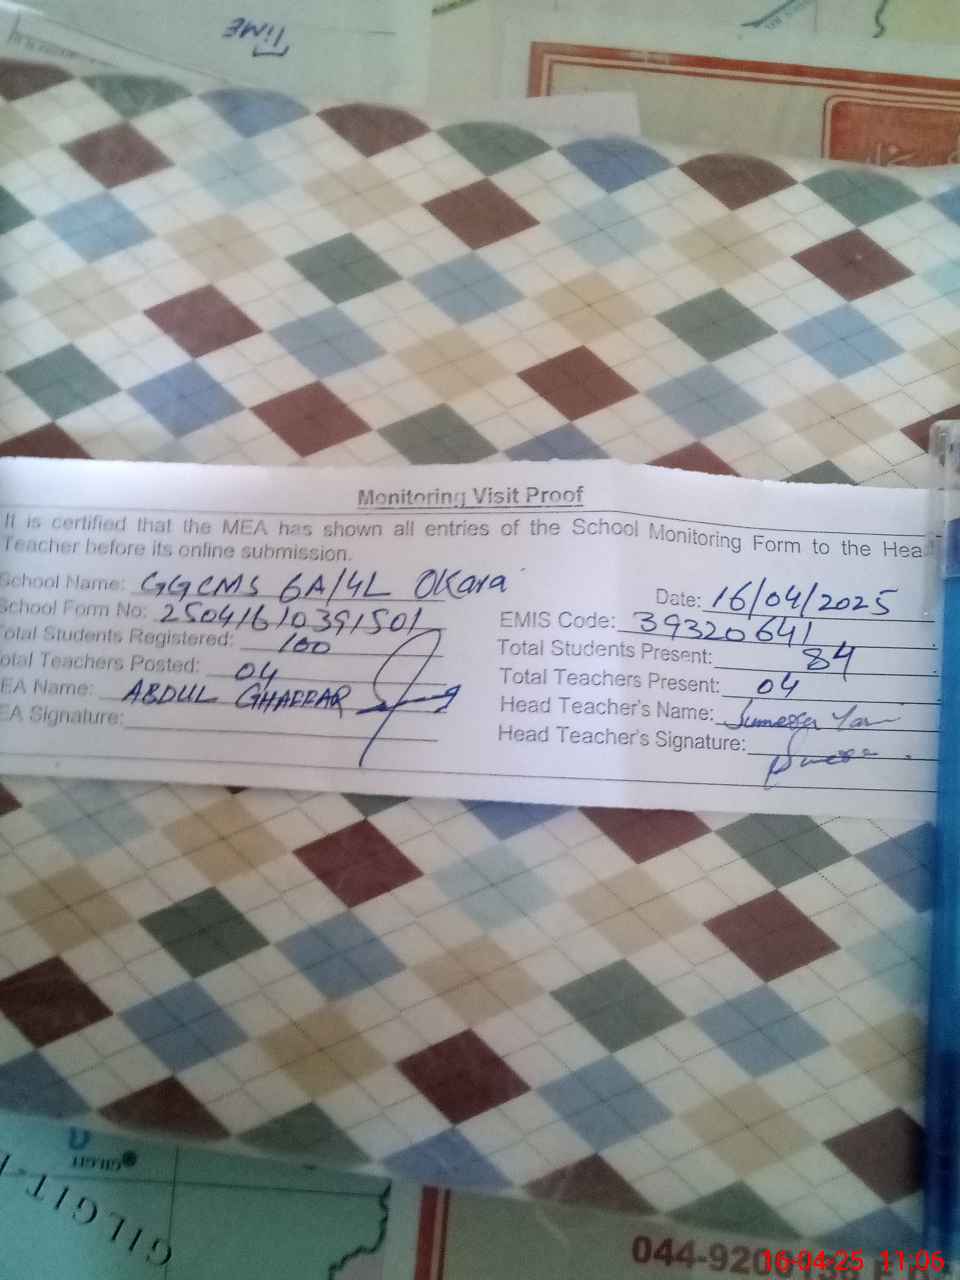 TIME
Monitoring Visit Proof
It is certified that the MEA has shown all entries of the School Monitoring Form to the Head
Teacher before its online submission.
School Name: GGCMS 6A/4L Okara
Date: 16/04/2025
School Form No: 25041610391501
EMIS Code: 39320641
Total Students Registered: 100
Total Students Present: 84
Total Teachers Posted: 04
Total Teachers Present: 04
EA Name: ABDUL GHAFFAR
Head Teacher's Name:
EA Signature:
Head Teacher's Signature:
GILGIT
GILGIT-
044-920
16-04-25 11:06